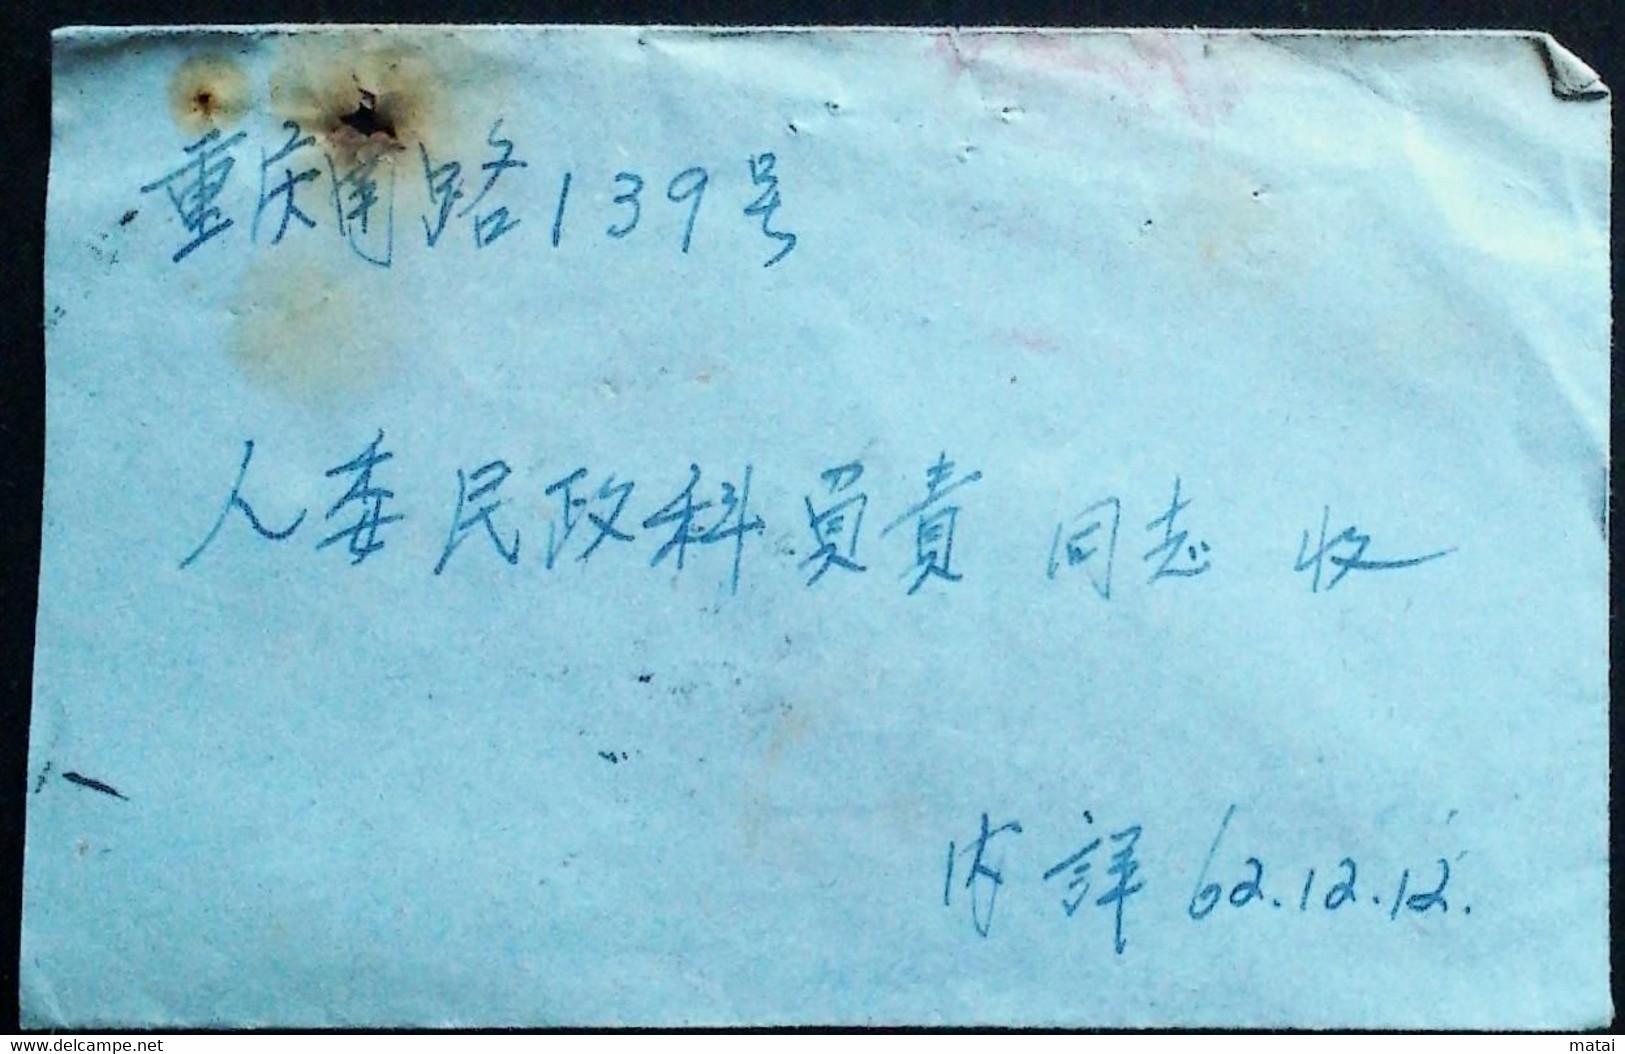 重庆南路139号
人委民政科員責 同志 收
内詳 62.12.12.
delcampe.net
matai